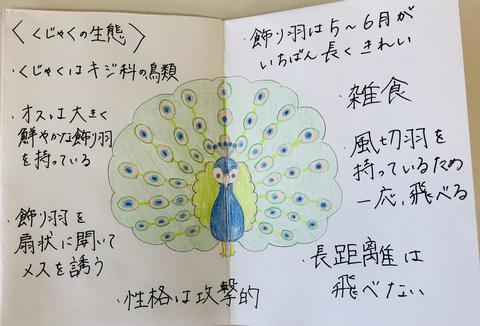 〈くじゃくの生態〉
・くじゃくはキジ科の鳥類
・オスは大きく
鮮やかな飾り羽
を持っている
・飾り羽を
扇状に開いて
メスを誘う
・性格は攻撃的
・飾り羽は5〜6月が
いちばん長くきれい
・雑食
・風切羽を
持っているため
一応、飛べる
・長距離は
飛べない